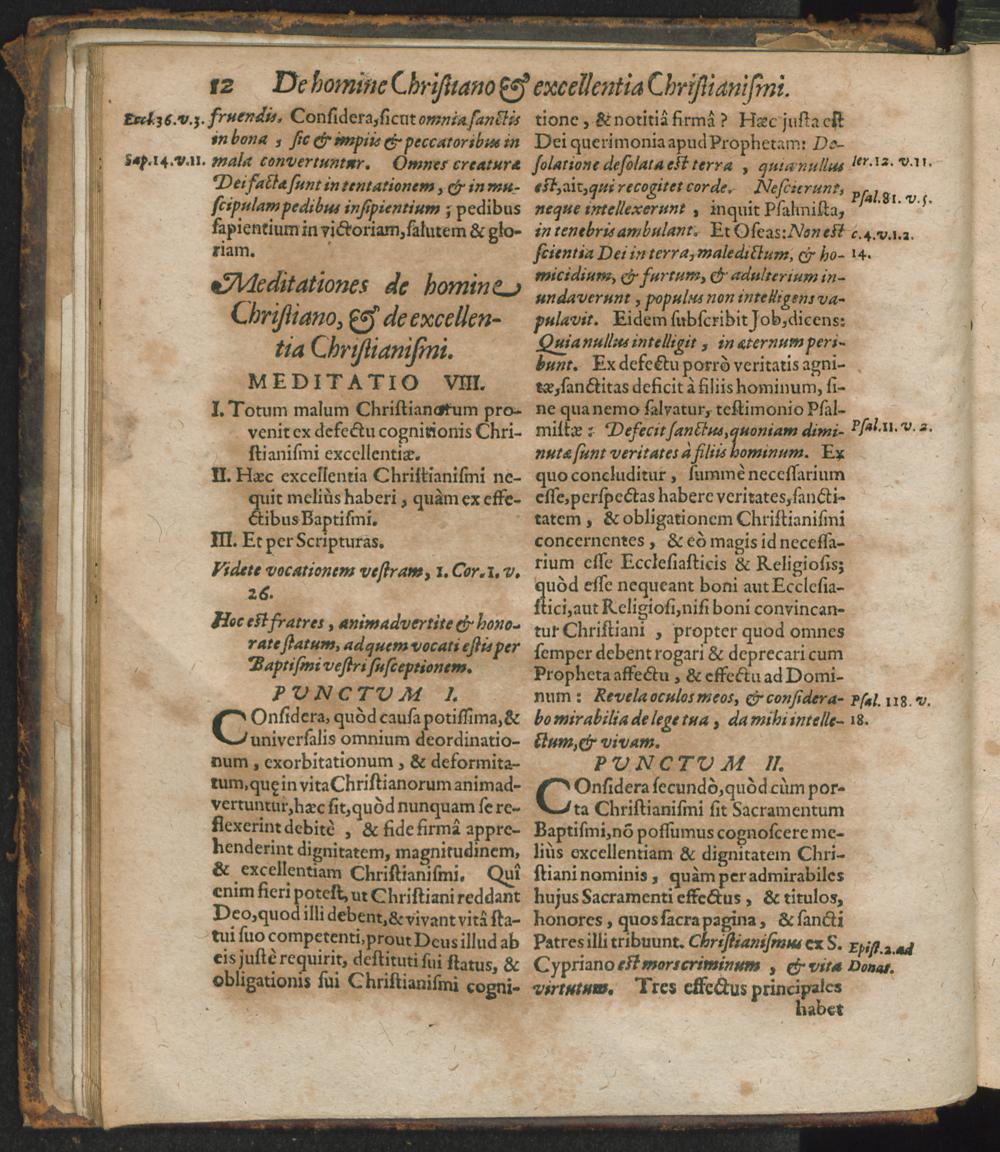 12 De homine Christiano & excellentia Christianismi.
Eccl. 36. v. 3. fruendis. Considera, sicut omnia sanctis
in bona, sic & impiis & peccatoribus in
Sap. 14. v. 11. mala convertuntur. Omnes creaturæ
Dei factæ sunt in tentationem, & in mu-
scipulam pedibus insipientium; pedibus
sapientium in victoriam, salutem & glo-
riam.
Meditationes de homine
Christiano, & de excellen-
tia Christianismi.
MEDITATIO VIII.
I. Totum malum Christianorum pro-
venit ex defectu cognitionis Chri-
stianismi excellentiæ.
II. Hæc excellentia Christianismi ne-
quit meliùs haberi, quàm ex effe-
ctibus Baptismi.
III. Et per Scripturas.
Videte vocationem vestram, 1. Cor. 1. v.
26.
Hoc est fratres, animadvertite & hono-
rate statum, ad quem vocati estis per
Baptismi vestri susceptionem.
PUNCTUM I.
COnsidera, quòd causa potissima, &
universalis omnium deordinatio-
num, exorbitationum, & deformita-
tum, quę in vita Christianorum animad-
vertuntur, hæc sit, quòd nunquam se re-
flexerint debitè, & fide firmâ appre-
henderint dignitatem, magnitudinem,
& excellentiam Christianismi. Quî
enim fieri potest, ut Christiani reddant
Deo, quod illi debent, & vivant vitâ sta-
tui suo competenti, prout Deus illud ab
eis justè requirit, destituti sui status, &
obligationis sui Christianismi cogni-
tione, & notitiâ firmâ? Hæc justa est
Dei querimonia apud Prophetam: De-
solatione desolata est terra, quia nullus Ier. 12. v. 11.
est, ait, qui recogitet corde. Nescierunt,
neque intellexerunt, inquit Psalmista, Psal. 81. v. 5.
in tenebris ambulant. Et Oseas: Non est c. 4. v. 1. 2.
scientia Dei in terra, maledictum, & ho- 14.
micidium, & furtum, & adulterium in-
undaverunt, populus non intelligens va-
pulavit. Eidem subscribit Job, dicens:
Quia nullus intelligit, in æternum peri-
bunt. Ex defectu porrò veritatis agni-
tæ, sanctitas deficit à filiis hominum, si-
ne qua nemo salvatur, testimonio Psal-
mistæ: Defecit sanctus, quoniam dimi- Psal. 11. v. 2.
nutæ sunt veritates à filiis hominum. Ex
quo concluditur, summè necessarium
esse, perspectas habere veritates, sancti-
tatem, & obligationem Christianismi
concernentes, & eò magis id necessa-
rium esse Ecclesiasticis & Religiosis;
quòd esse nequeant boni aut Ecclesia-
stici, aut Religiosi, nisi boni convincan-
tur Christiani, propter quod omnes
semper debent rogari & deprecari cum
Propheta affectu, & effectu ad Domi-
num: Revela oculos meos, & considera- Psal. 118. v.
bo mirabilia de lege tua, da mihi intelle- 18.
ctum, & vivam.
PUNCTUM II.
COnsidera secundò, quòd cùm por-
ta Christianismi sit Sacramentum
Baptismi, nō possumus cognoscere me-
liùs excellentiam & dignitatem Chri-
stiani nominis, quàm per admirabiles
hujus Sacramenti effectus, & titulos,
honores, quos sacra pagina, & sancti
Patres illi tribuunt. Christianismus ex S. Epist. 2. ad
Cypriano est mors criminum, & vita Donat.
virtutum. Tres effectus principales
habet